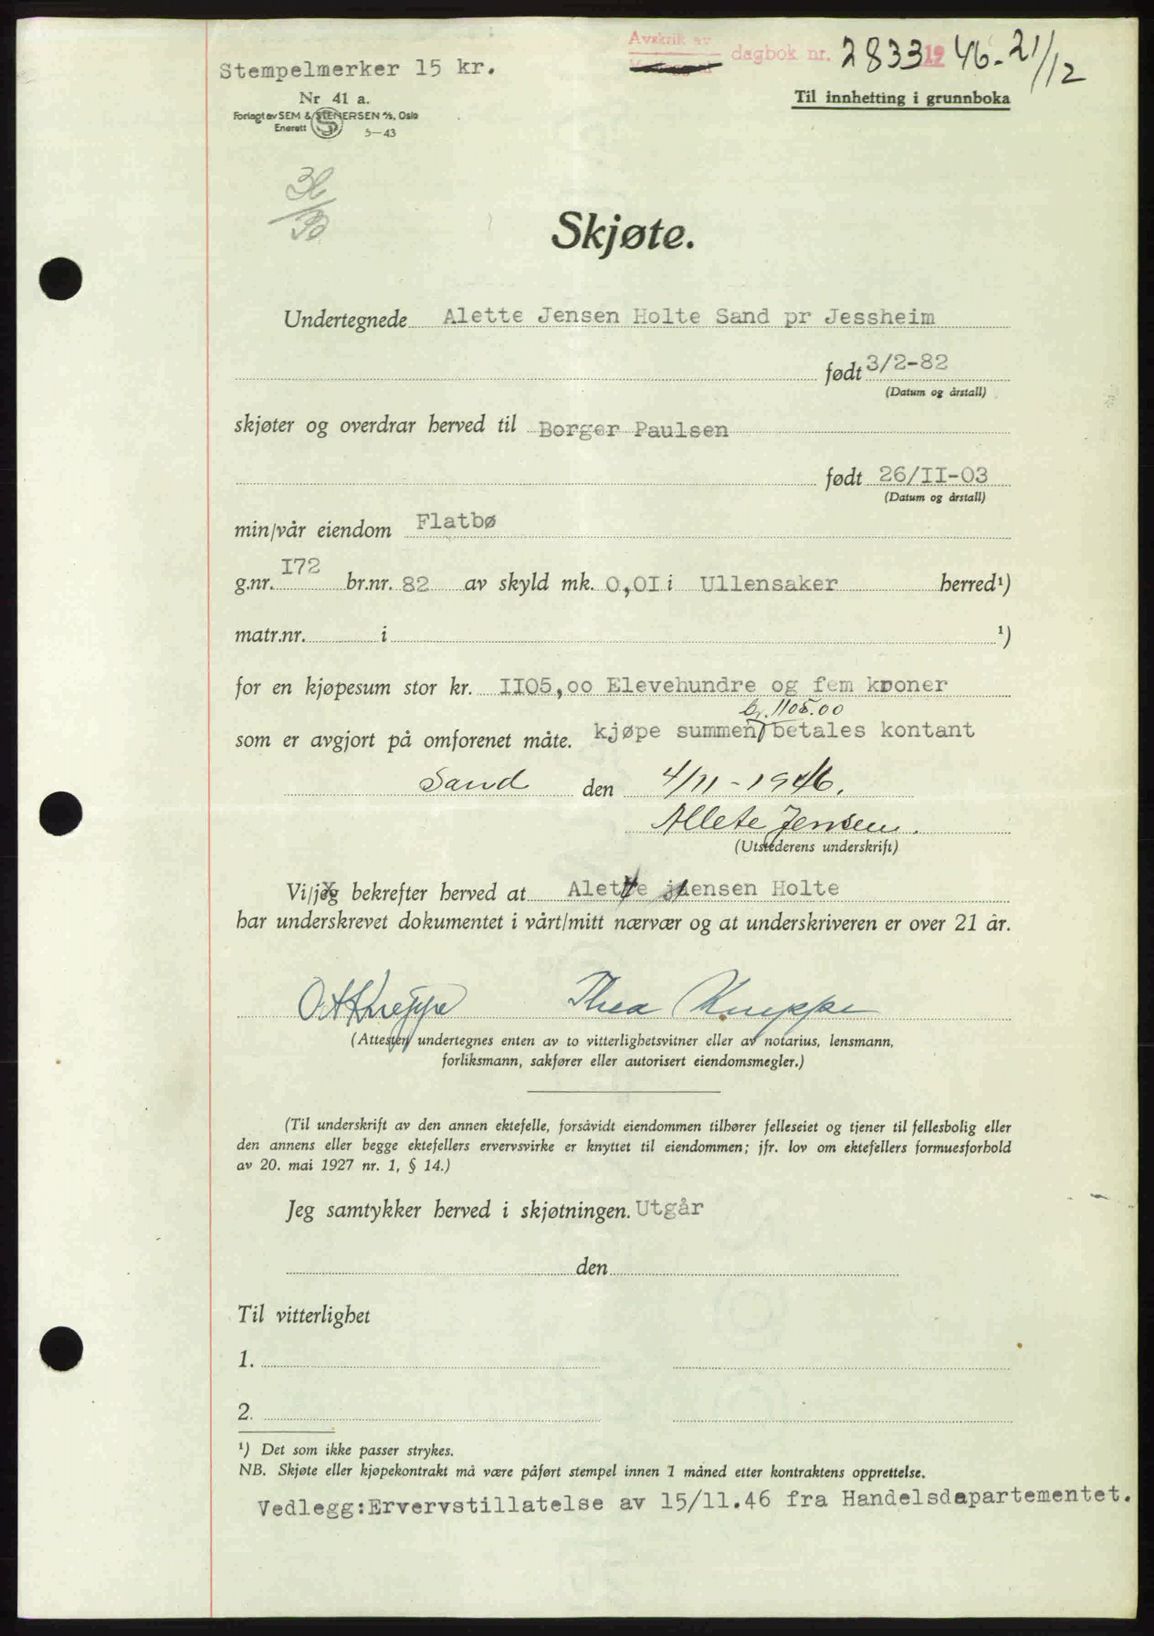 Avskrik av dagbok nr. 2833 1946. 21/12
Stempelmerker 15 kr.
Nr 41 a.
Forlagt av SEM & STENERSEN A/S, Oslo
Enerett 5-43
Til innhetting i grunnboka
Skjøte.
Undertegnede Alette Jensen Holte Sand pr Jessheim
født 3/2-82
(Datum og årstall)
skjøter og overdrar herved til Borger Paulsen
født 26/II-03
(Datum og årstall)
min/vår eiendom Flatbø
g.nr. I72 br.nr. 82 av skyld mk. 0,0I i Ullensaker herred¹)
matr.nr. i ¹)
for en kjøpesum stor kr. II05,oo Elevehundre og fem kroner
kr. 1105.00
som er avgjort på omforenet måte. kjøpe summen betales kontant
Sand den 4/11-1946.
Allete Jensen.
(Utstederens underskrift)
Vi/jeg bekrefter herved at Alette jensen Holte
har underskrevet dokumentet i vårt/mitt nærvær og at underskriveren er over 21 år.
Thea Knuppe
(Attesten undertegnes enten av to vitterlighetsvitner eller av notarius, lensmann,
forliksmann, sakfører eller autorisert eiendomsmegler.)
(Til underskrift av den annen ektefelle, forsåvidt eiendommen tilhører felleseiet og tjener til fellesbolig eller
den annens eller begge ektefellers ervervsvirke er knyttet til eiendommen; jfr. lov om ektefellers formuesforhold
av 20. mai 1927 nr. 1, § 14.)
Jeg samtykker herved i skjøtningen. Utgår
den
Til vitterlighet
1.
2.
¹) Det som ikke passer strykes.
NB. Skjøte eller kjøpekontrakt må være påført stempel innen 1 måned etter kontraktens opprettelse.
Vedlegg:Ervervstillatelse av 15/11.46 fra Handelsdepartementet.